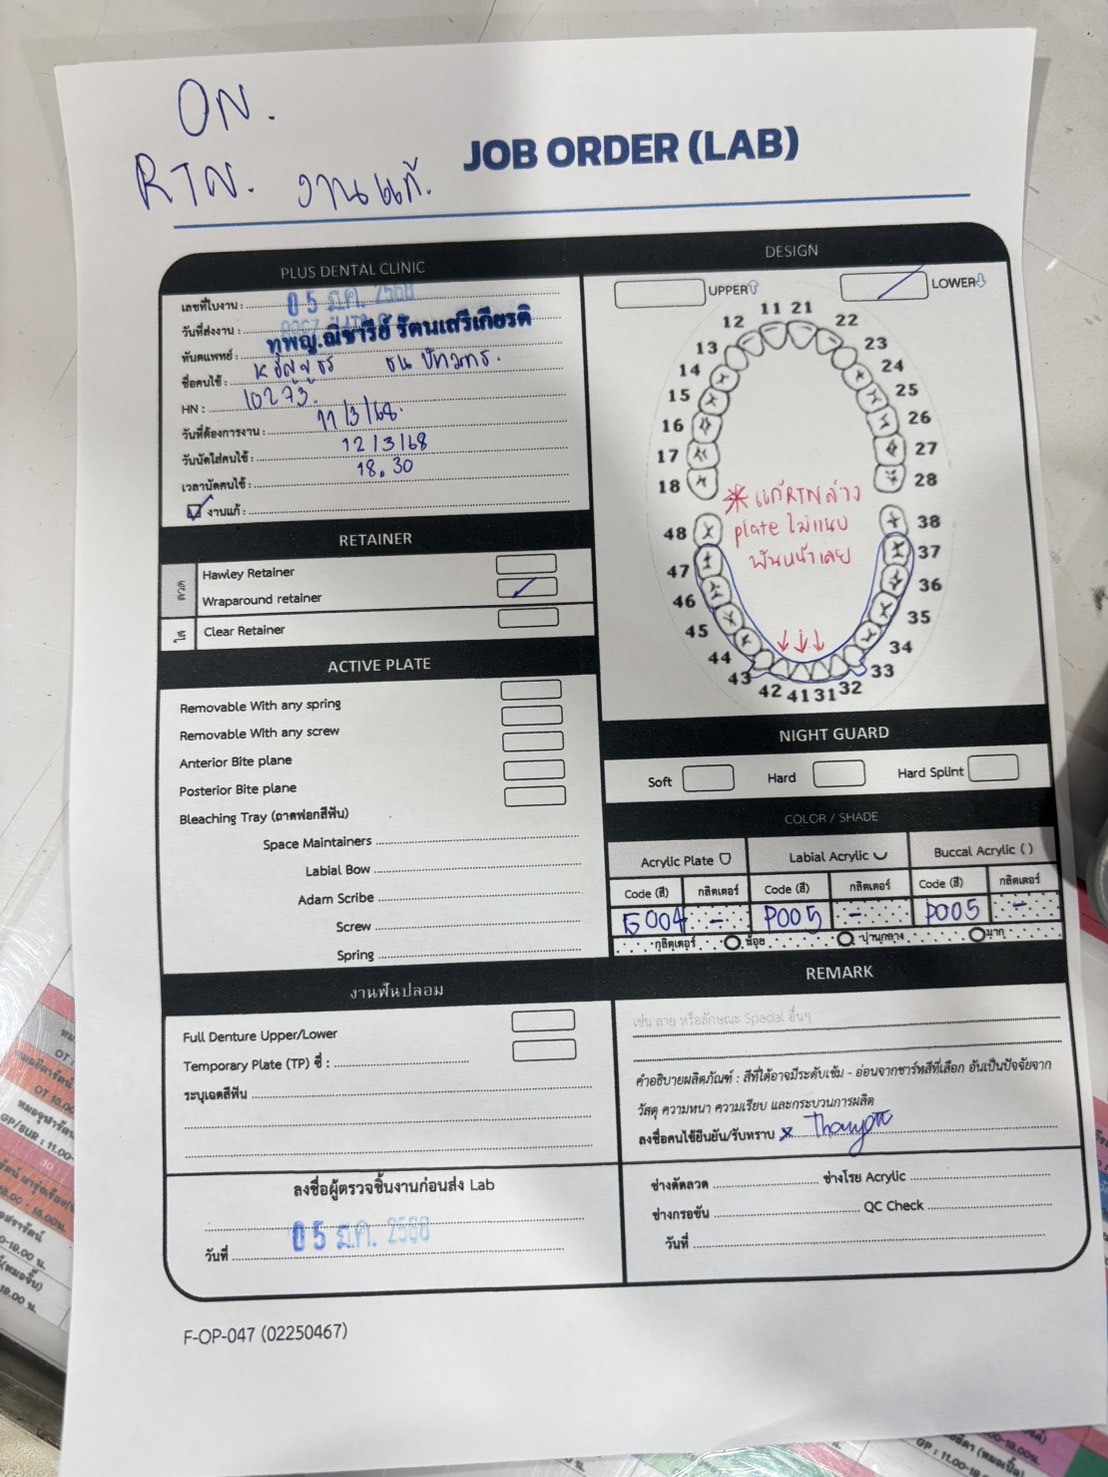 ON.
RTN. งานแก้.
JOB ORDER (LAB)
PLUS DENTAL CLINIC
เลขที่ใบงาน :
05 มี.ค. 2568
วันที่ส่งงาน :
ทันตแพทย์ : ทพญ.ณิชารีย์ รัตนเสรีเกียรติ
ชื่อคนไข้ :
HN : 10273.
วันที่ต้องการงาน : 11/3/68.
วันนัดใส่คนไข้ : 12/3/68
เวลานัดคนไข้ : 18.30
งานแก้ :
RETAINER
ลวด
Hawley Retainer
Wraparound retainer
ใส
Clear Retainer
ACTIVE PLATE
Removable With any spring
Removable With any screw
Anterior Bite plane
Posterior Bite plane
Bleaching Tray (ถาดฟอกสีฟัน)
Space Maintainers
Labial Bow
Adam Scribe
Screw
Spring
งานฟันปลอม
Full Denture Upper/Lower
Temporary Plate (TP) ซี่ :
ระบุเฉดสีฟัน
ลงชื่อผู้ตรวจชิ้นงานก่อนส่ง Lab
05 มี.ค. 2568
วันที่
DESIGN
UPPER LOWER
11 21
12 22
13 23
14 24
15 25
16 26
17 27
18 28
48 38
47 37
46 36
45 35
44 34
43 33
42 41 31 32
* แก้ RTN ล่าง
plate ไม่แนบ
ฟันหน้าเลย
NIGHT GUARD
Soft Hard Hard Splint
COLOR / SHADE
Acrylic Plate Labial Acrylic Buccal Acrylic ( )
Code (สี) กลิตเตอร์ Code (สี) กลิตเตอร์ Code (สี) กลิตเตอร์
G004 - P005 - P005 -
กลิตเตอร์ น้อย ปานกลาง มาก
REMARK
เช่น ลาย หรือลักษณะ Special อื่นๆ
คำอธิบายผลิตภัณฑ์ : สีที่ได้อาจมีระดับเข้ม - อ่อนจากชาร์ทสีที่เลือก อันเป็นปัจจัยจาก
วัสดุ ความหนา ความเรียบ และกระบวนการผลิต
ลงชื่อคนไข้ยืนยัน/รับทราบ x
ช่างดัดลวด ช่างโรย Acrylic
ช่างกรอขัน QC Check
วันที่
F-OP-047 (02250467)